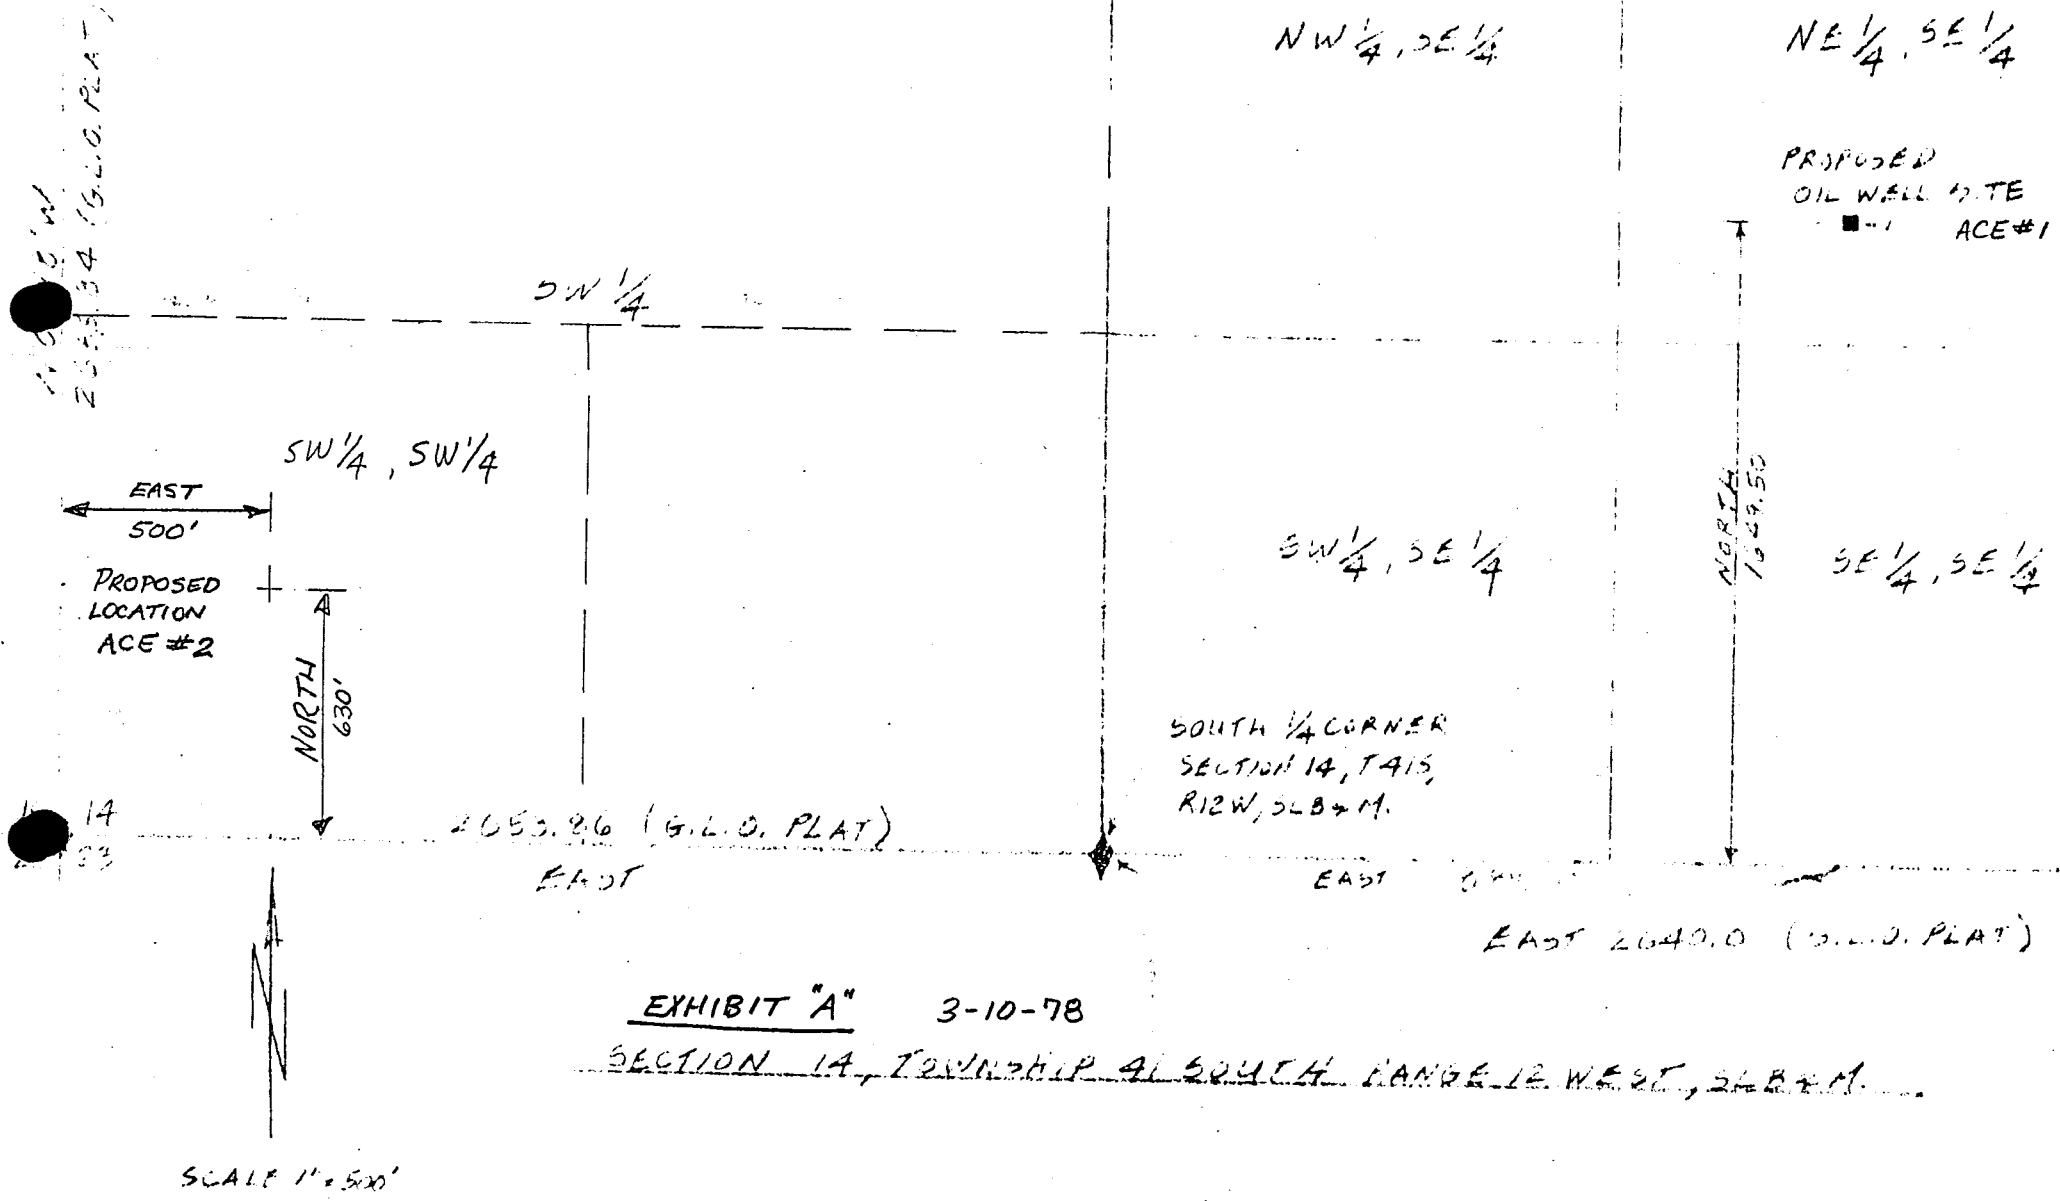 NW 1/4, SE 1/4
NE 1/4, SE 1/4
(G.L.O. PLAT)
PROPOSED
OIL WELL SITE
ACE #1
SW 1/4
SW 1/4, SW 1/4
EAST
500'
PROPOSED
LOCATION
ACE #2
NORTH
630'
SW 1/4, SE 1/4
NORTH
1649.50
SE 1/4, SE 1/4
SOUTH 1/4 CORNER
SECTION 14, T41S,
R12W, SLB & M.
14
23
2653.86 (G.L.O. PLAT)
EAST
EAST
EAST 2640.0 (G.L.O. PLAT)
EXHIBIT "A" 3-10-78
SECTION 14, TOWNSHIP 41 SOUTH RANGE 12 WEST, SLB & M.
N
SCALE 1" = 500'